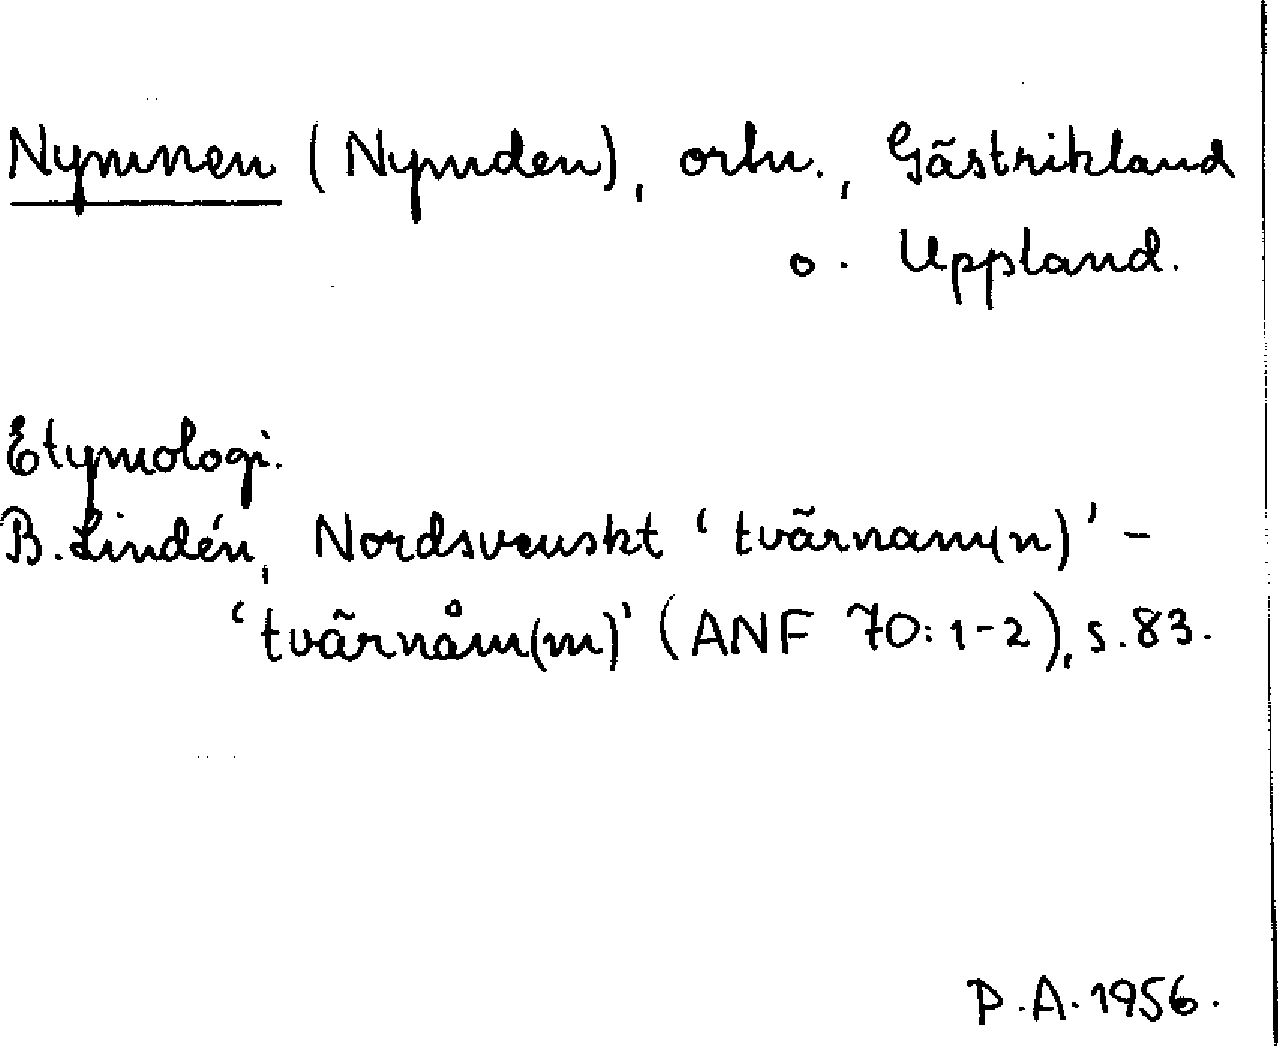 Nymnen (Nymden), ortn., Gästrikland
o. Uppland.
Etymologi.
B. Lindén, Nordsvenskt ‘tvärnam(n)’ -
‘tvärnåm(m)’ (ANF 70:1-2), s. 83.
P.A. 1956.